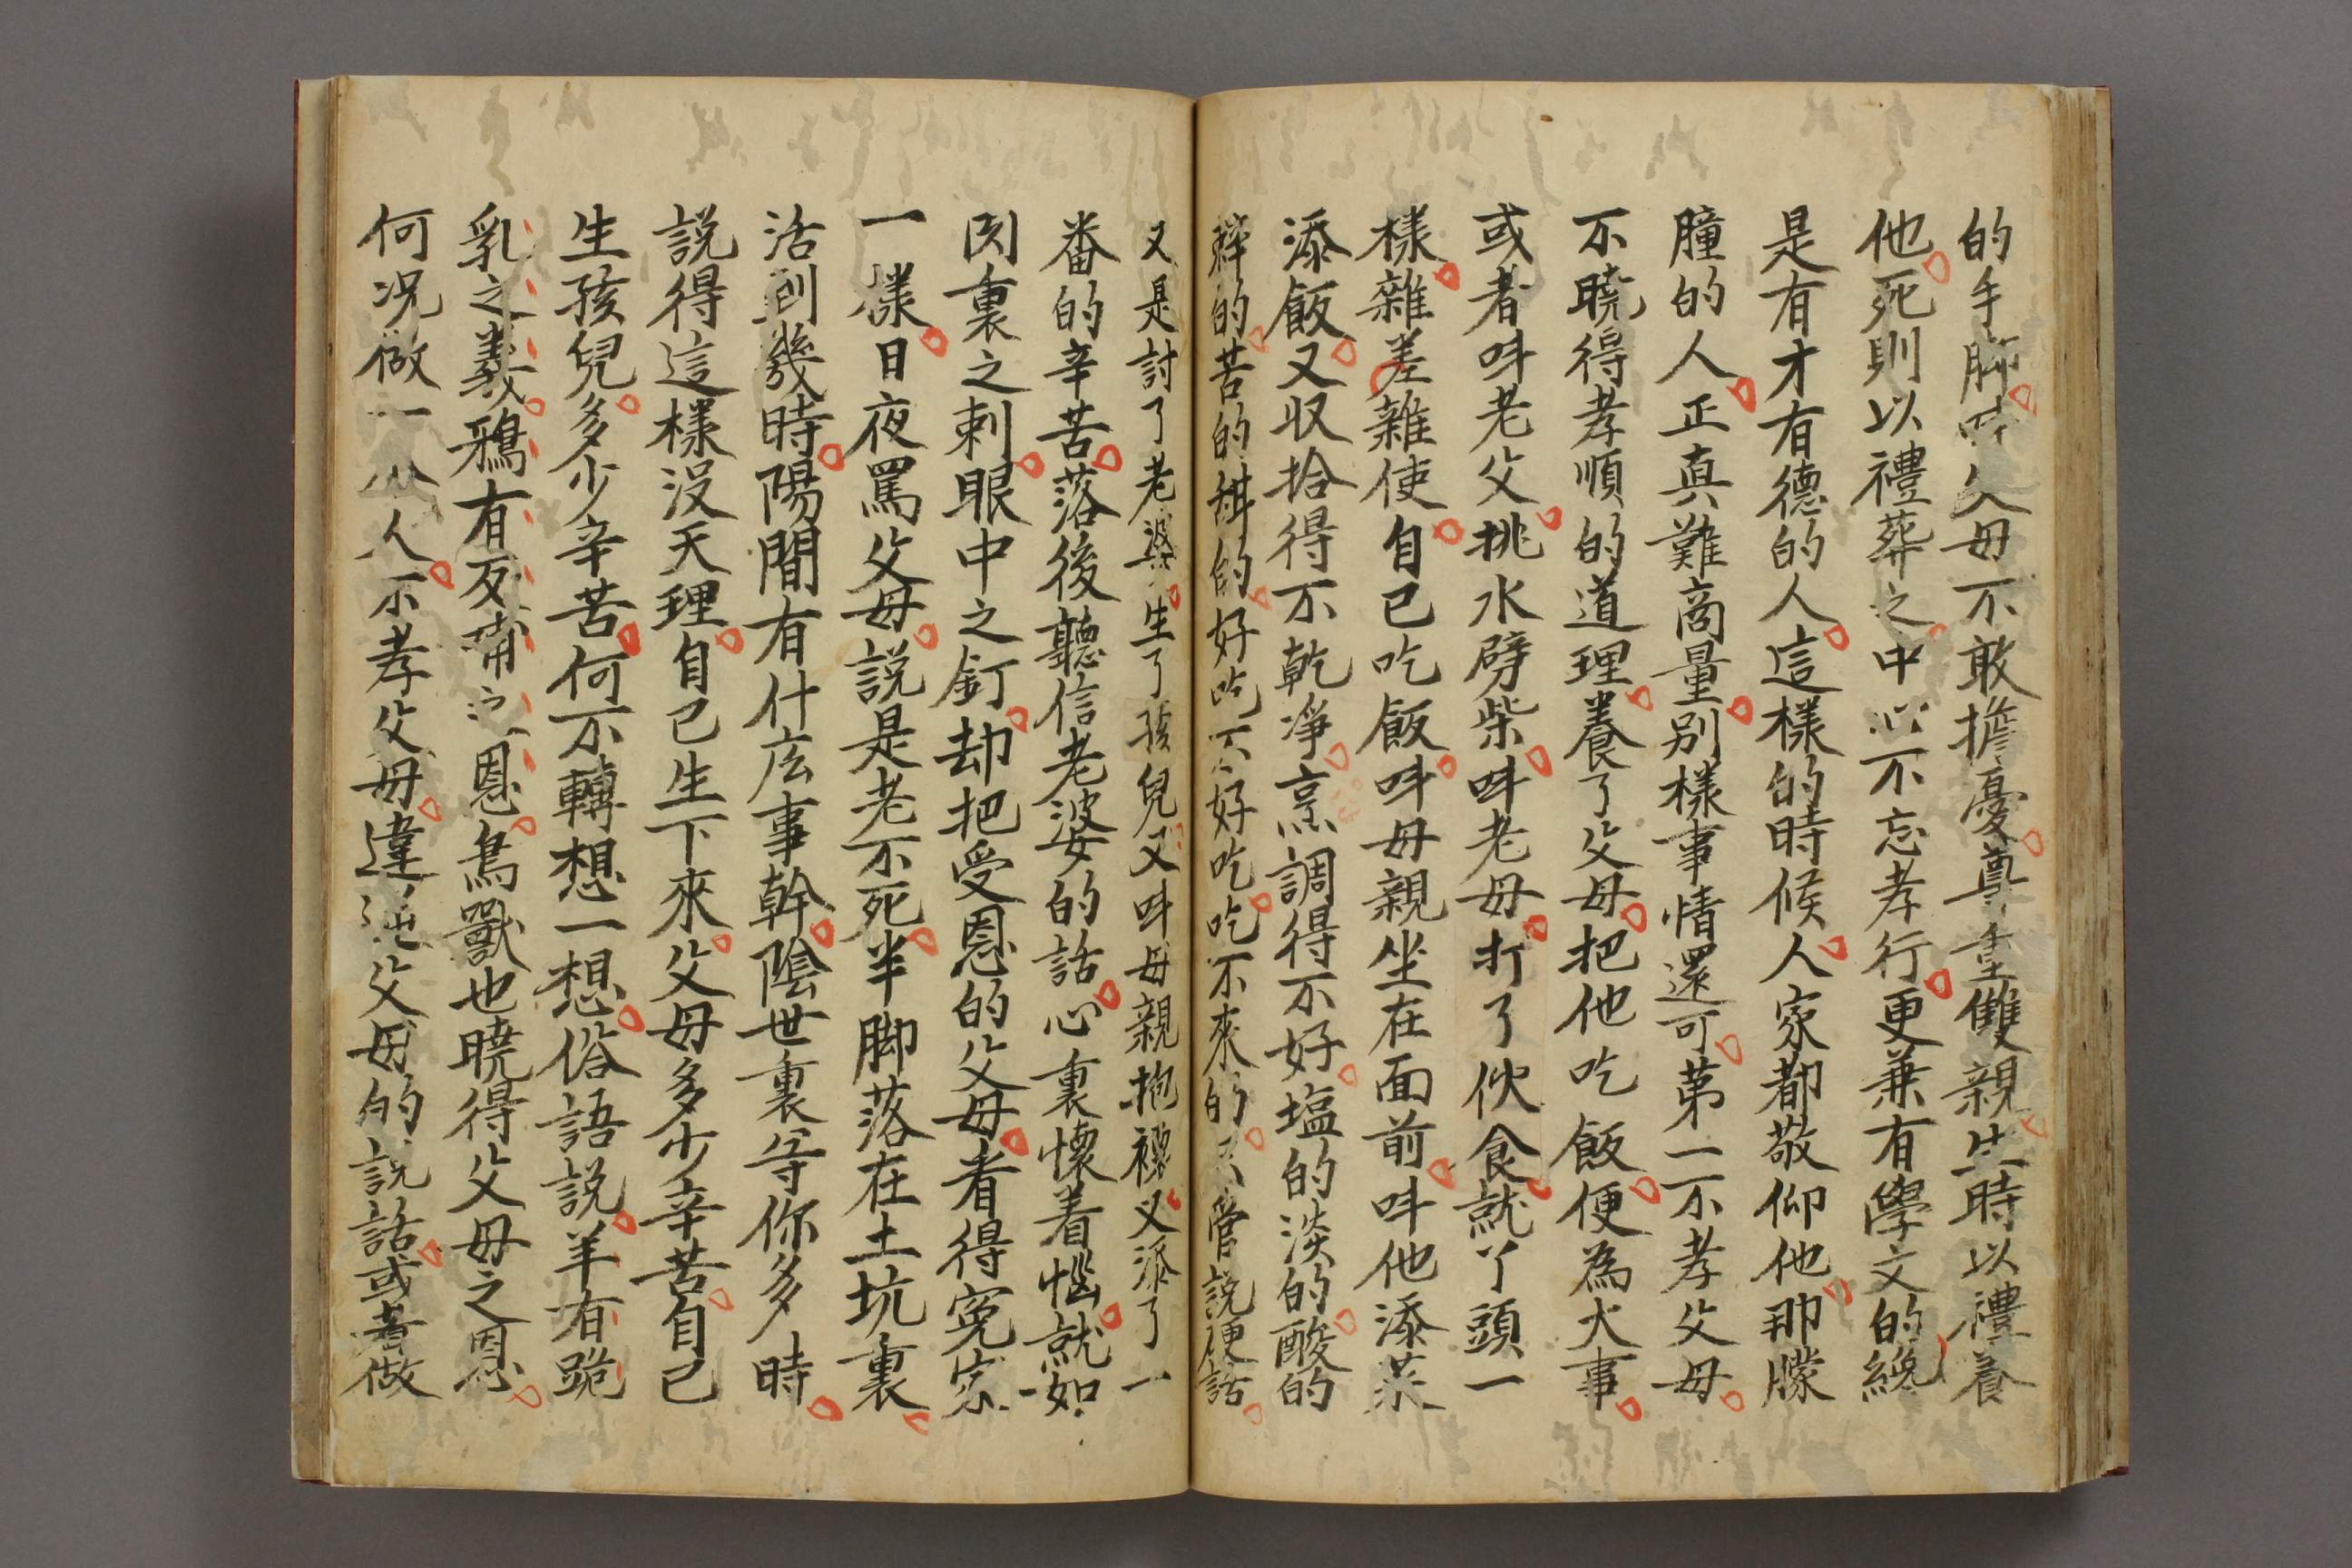 的手脚時父母不敢擔憂尊重雙親生時以禮養
他死則以禮葬之中心不忘孝行更兼有學文的纔
是有才有德的人這樣的時候人家都敬仰他那朦
朣的人正真難商量别樣事情還可第一不孝父母
不曉得孝順的道理養了父母把他吃飯便為大事
或者呌老父挑水劈柴呌老母打了伙食就丫頭一
樣雜差雜使自已吃飯呌母親坐在面前呌他添菜
添飯又収拾得不乾凈烹調得不好塩的淡的酸的
辢的苦的甜的好吃不好吃吃不來的不管説硬話
又是討了老婆生了孩兒又呌母親抱襁又添了一
番的辛苦落後聽信老婆的話心裏懷着惱就如
肉裏之刺眼中之釘却把受恩的父母看得寃家
一樣日夜罵父母説是老不死半脚落在土坑裏
活到幾時陽間有什庅事幹陰世裏等你多時
説得這樣没天理自己生下來父母多少辛苦自己
生孩兒多少辛苦何不轉想一想俗語説羊有跪
乳之義鴉有反哺之恩鳥獸也曉得父母之恩
何况做一個人不孝父母違逆父母的説話或者做